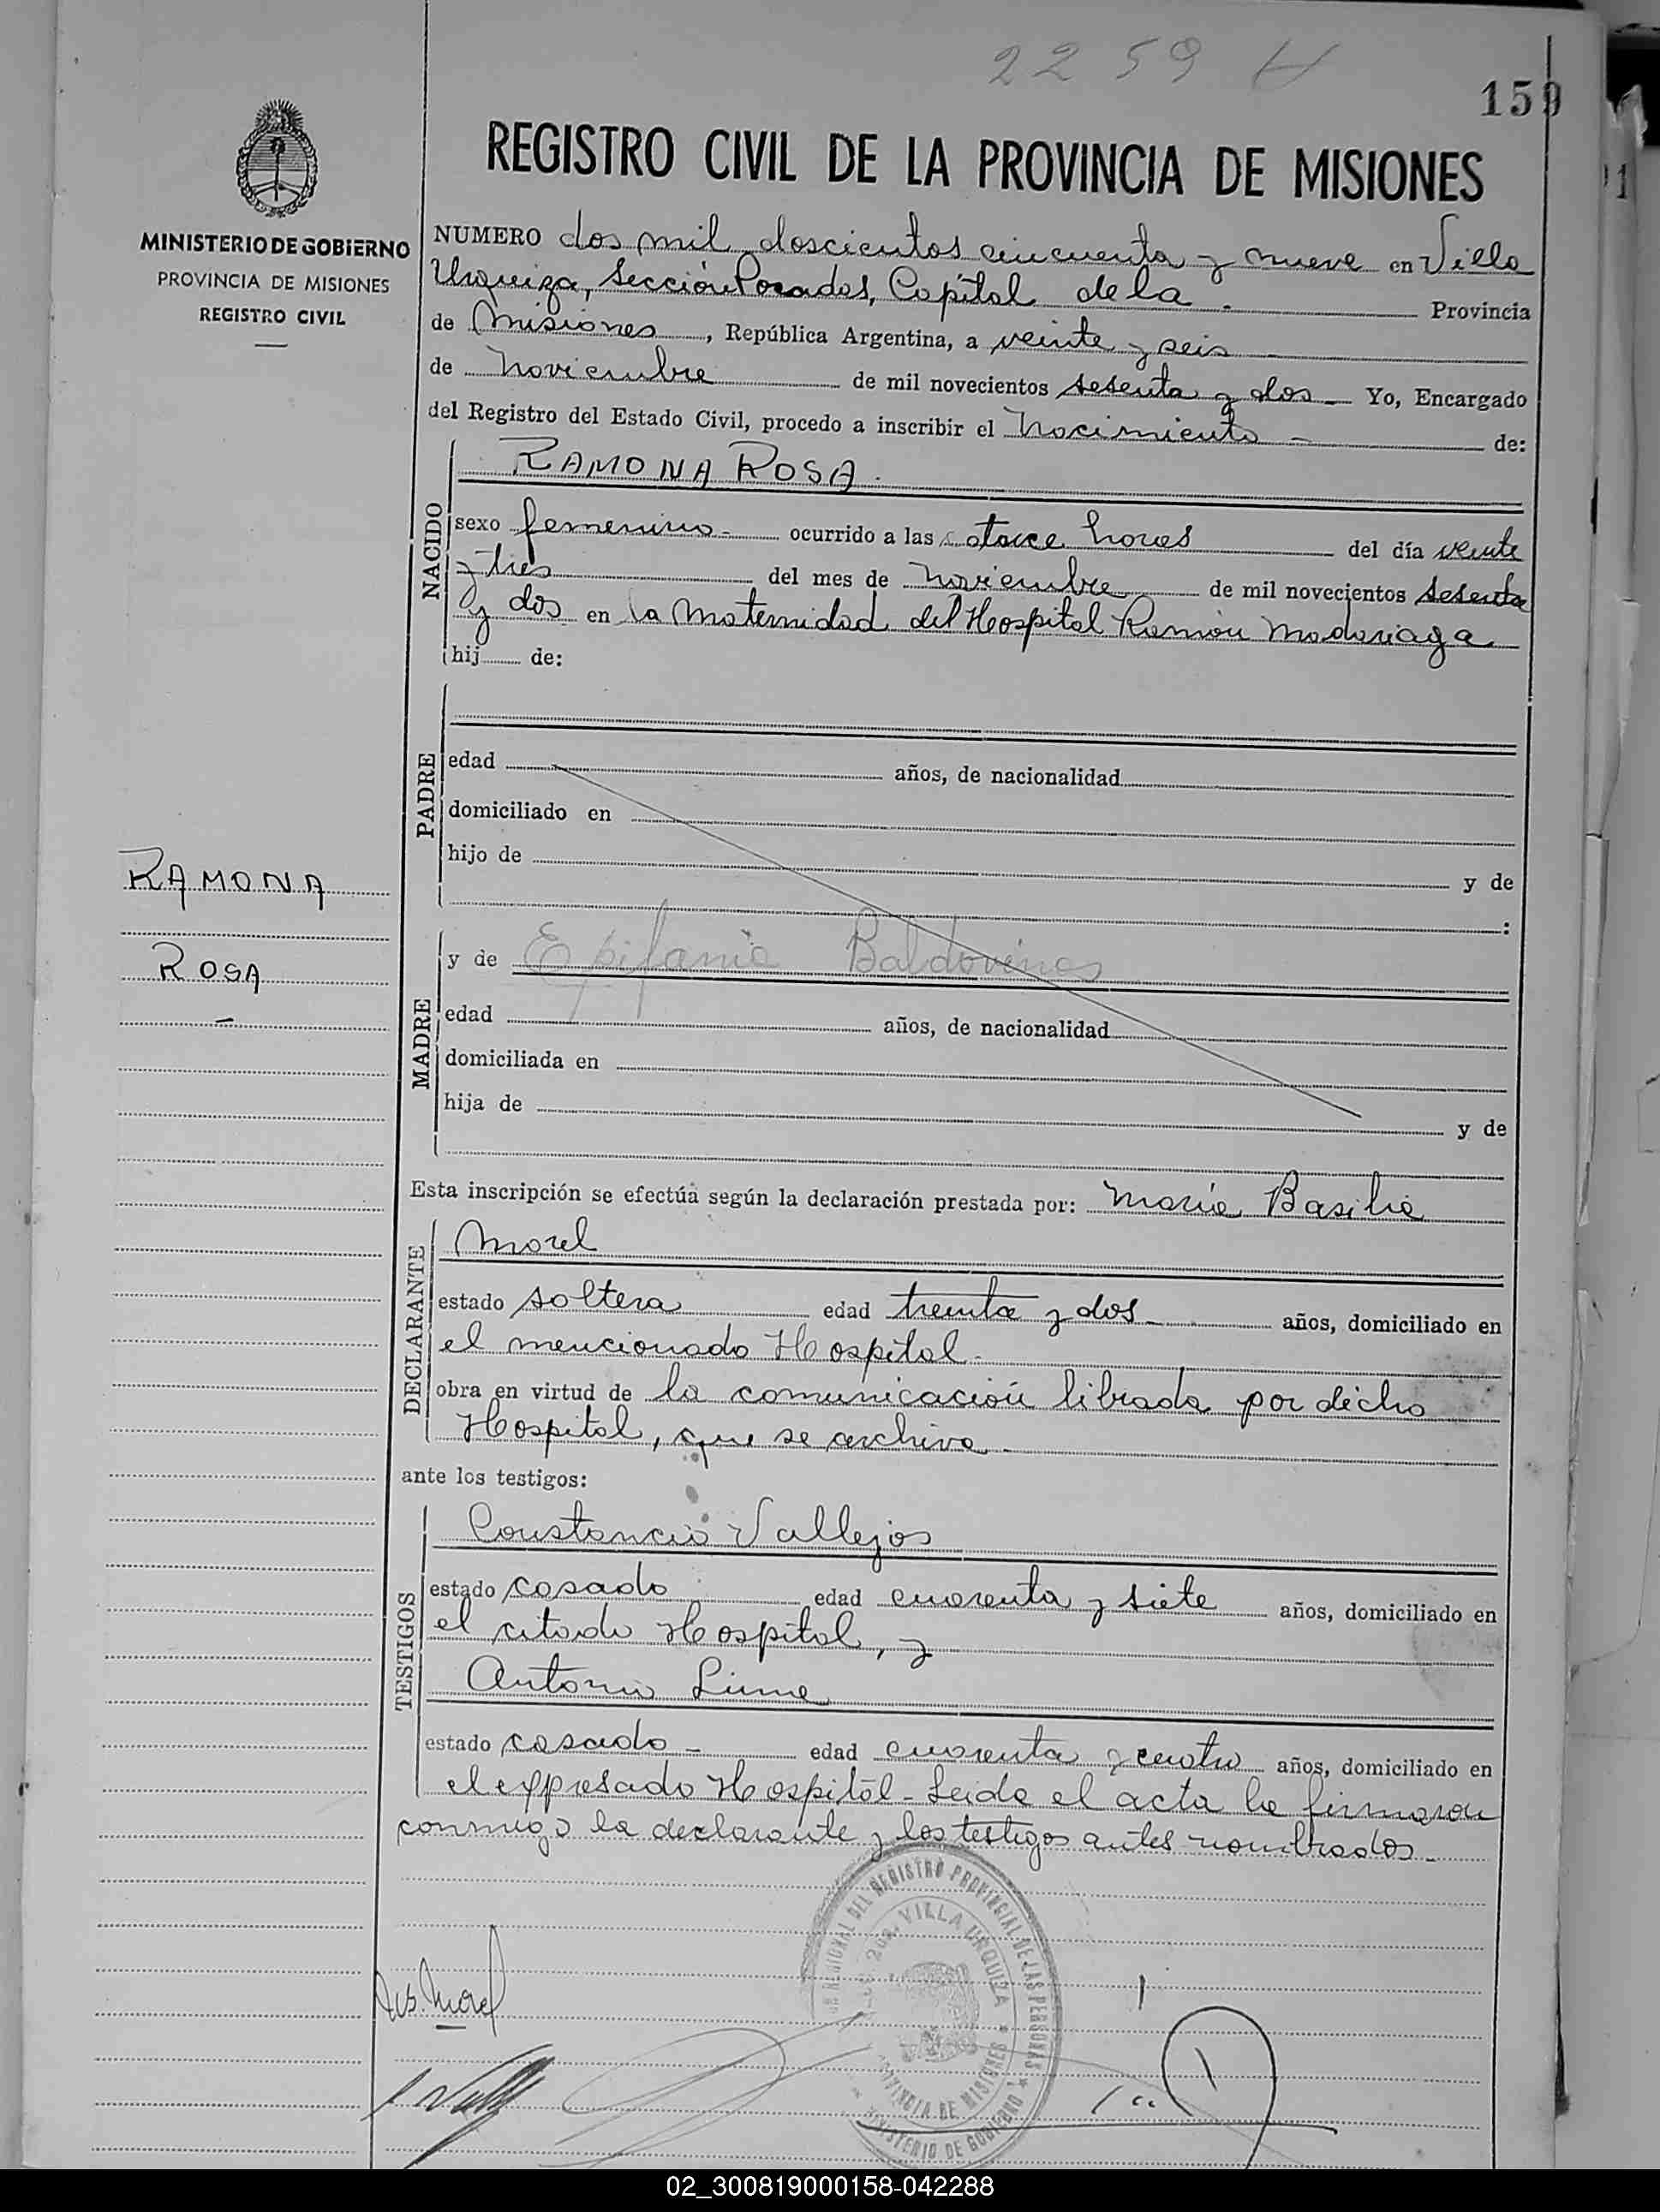 2259 H
159
REGISTRO CIVIL DE LA PROVINCIA DE MISIONES
MINISTERIO DE GOBIERNO
PROVINCIA DE MISIONES
REGISTRO CIVIL
NUMERO dos mil doscientos cincuenta y nueve en Villa
Urquiza, Sección Posadas, Capital de la Provincia
de Misiones, República Argentina, a veinte y seis
de Noviembre de mil novecientos sesenta y dos Yo, Encargado
del Registro del Estado Civil, procedo a inscribir el Nacimiento de:
NACIDO
RAMONA ROSA.
sexo femenino ocurrido a las catorce horas del día veinte
y tres del mes de Noviembre de mil novecientos sesenta
y dos en la Maternidad del Hospital Ramón Madariaga
hij de:
PADRE
edad años, de nacionalidad
domiciliado en
hijo de y de
:
RAMONA
ROSA
MADRE
y de Epifania Baldovinos
edad años, de nacionalidad
domiciliada en
hija de y de
Esta inscripción se efectúa según la declaración prestada por: María Basilia
DECLARANTE
Morel
estado soltera edad treinta y dos años, domiciliado en
el mencionado Hospital.
obra en virtud de la comunicación librada por dicho
Hospital, que se archiva
ante los testigos:
TESTIGOS
Constancio Vallejos
estado casado edad cuarenta y siete años, domiciliado en
el citado Hospital, y
Antonio
estado casado edad cuarenta y cuatro años, domiciliado en
el expresado Hospital - Leida el acta la firmaron
conmigo la declarante y los testigos antes nombrados.
REGIONAL DEL REGISTRO PROVINCIAL DE LAS PERSONAS
VILLA URQUIZA
PROVINCIA DE MISIONES
MINISTERIO DE GOBIERNO
Morel
02_300819000158-042288